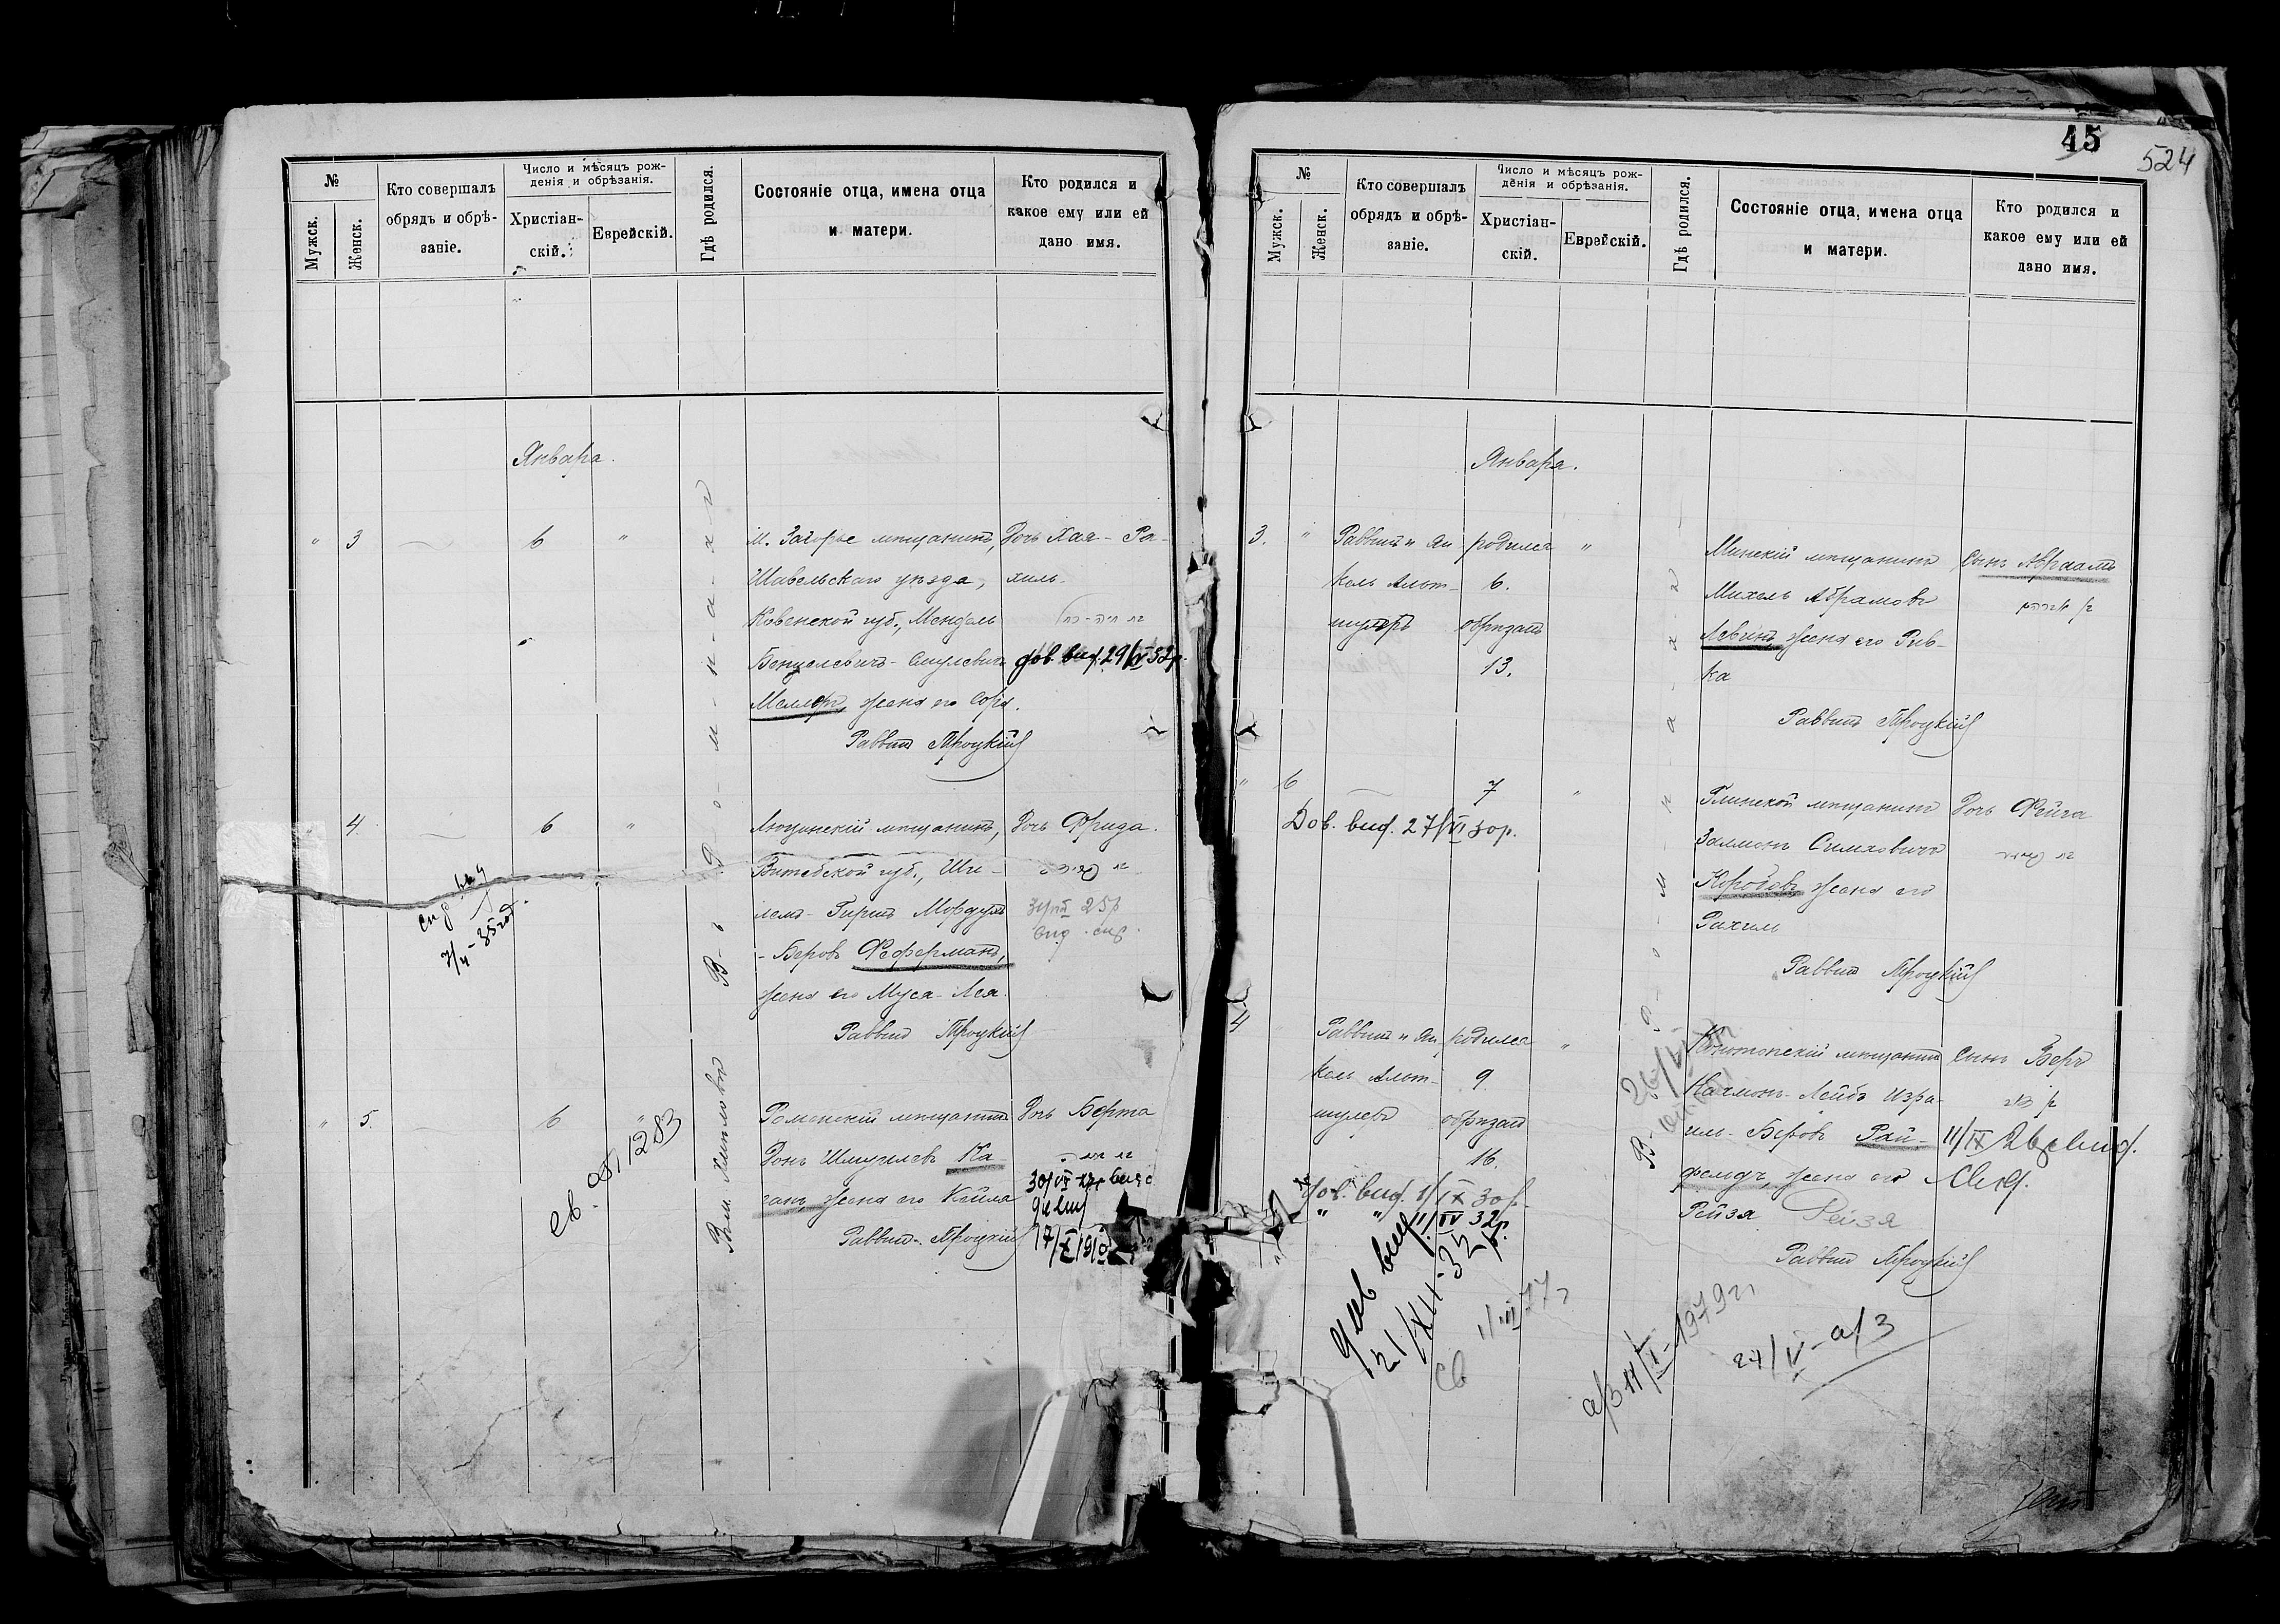 №
Мужск.
Женск.
Кто совершалъ
обрядъ и обрѣ-
заніе.
Число и мѣсяцъ рож-
денія и обрѣзанія.
Христіан-
скій.
Еврейскій.
Гдѣ родился.
Состояніе отца, имена отца
и матери.
Кто родился и
какое ему или ей
дано имя.
Января.
" 3 6 "
м. Загорье мѣщанинъ,
Шавельскаго уѣзда,
Ковенской губ., Мендель
Бенцелевичъ-Шмулевичъ
жена его Сора.
Раввинъ Троцкій
Дочь Хая-Ра-
хиль
בת חיה-רחל
дов. выд. 29/IV 32р.
4 6 "
Люцинскій мѣщанинъ,
Витебской губ., Ши-
лемъ-Гиршъ Мовдухъ
-Беровъ Феферманъ,
жена его Муся-Лея.
Раввинъ Троцкій
Дочь Фрида.
בת פרידה
31/VIII 25р
7/V-35 год.
" 5. 6 "
Роменскій мѣщанинъ
Шмуилевъ Ка-
ганъ, жена его Кейла
Раввинъ Троцкій
Дочь Берта
св. 051283
В-ъ Р-о-м-н-а-х-ъ
45
524
№
Мужск.
Женск.
Кто совершалъ
обрядъ и обрѣ-
заніе.
Число и мѣсяцъ рож-
денія и обрѣзанія.
Христіан-
скій.
Еврейскій.
Гдѣ родился.
Состояніе отца, имена отца
и матери.
Кто родился и
какое ему или ей
дано имя.
Января.
3. " Раввинъ Ян-
кель Альт-
шулеръ
родился
6.
обрѣзанъ
13.
"
Минскій мѣщанинъ
Михель Абрамовъ
Левинъ, жена его Рив-
ка
Раввинъ Троцкій
Сынъ Авраамъ
בן אברהם
" 6 7 "
Дов. выд. 27/VI 30р.
Глинской мѣщанинъ
Залмонъ Симховичъ
Коробовъ жена его
Рахиль
Раввинъ Троцкій
Дочь Фейга
4 Раввинъ Ян-
кель Альт-
шулеръ
родился
9.
обрѣзанъ
16.
"
Конотопскій мѣщанинъ
Нахмонъ-Лейбъ Изра-
иль-Беровъ Рай-
фельдъ, жена его
Рейзя Рейзя
Раввинъ Троцкій
Сынъ Беръ
בן בער
Дов. выд. 1/IX 30р.
" " 11/IV 32р.
21/XII-32р.
св 1/III 77г
а/з 11/I-1979г
24/V-а/з